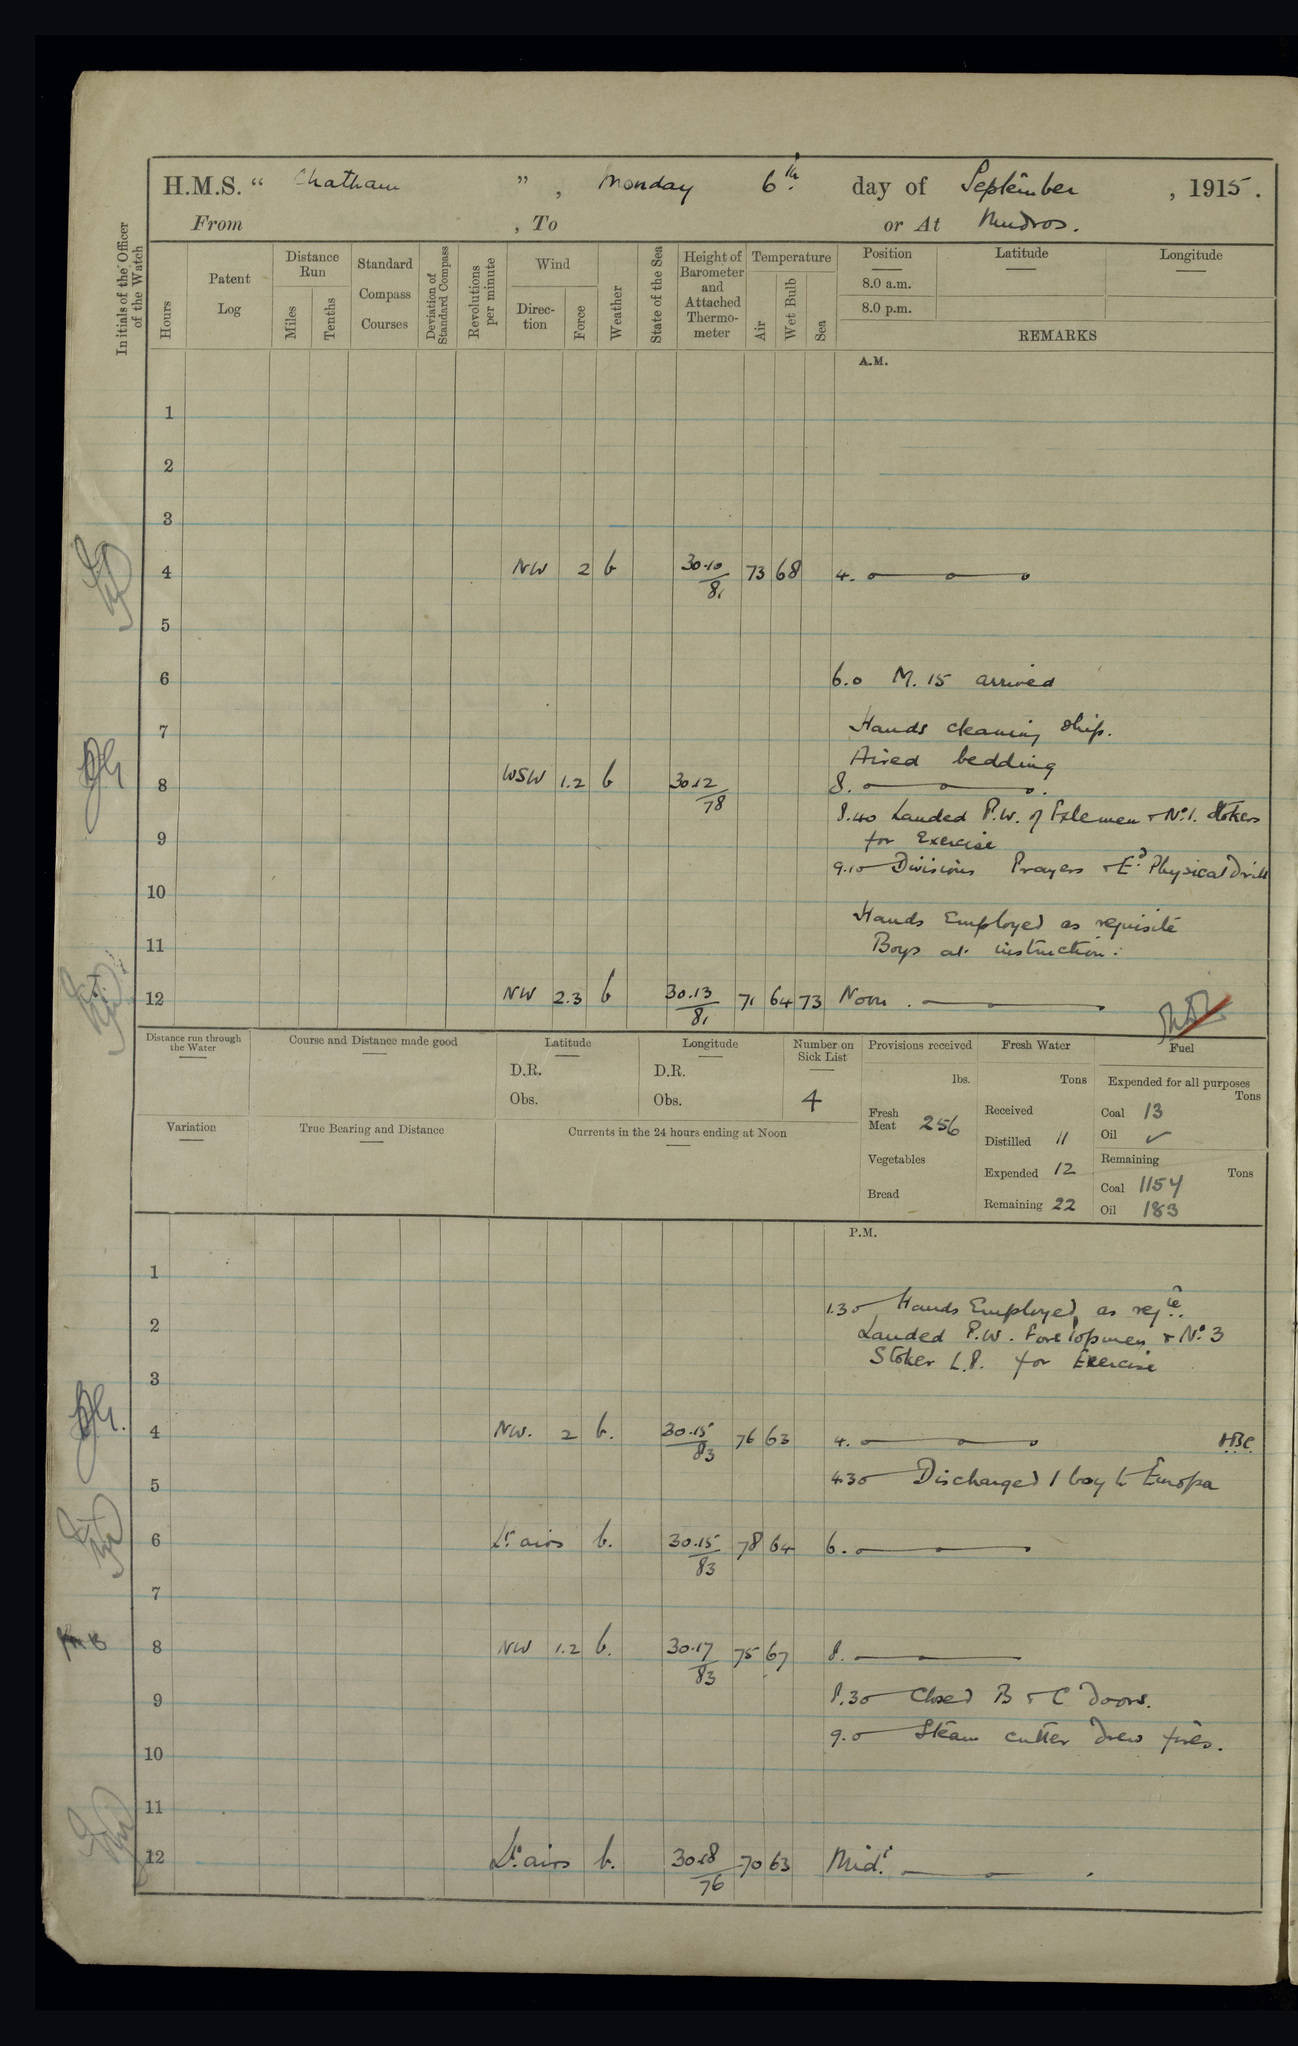 H.M.S. “ Chatham ” , Monday 6th. day of September , 1915.
From , To or At Mudros.
Initials of the Officer of the Watch
Hours
Patent Log
Distance Run
Miles
Tenths
Standard Compass Courses
Deviation of Standard Compass
Revolutions per minute
Wind
Direction
Force
Weather
State of the Sea
Height of Barometer and Attached Thermometer
Temperature
Air
Wet Bulb
Sea
Position
Latitude
Longitude
8.0 a.m.
8.0 p.m.
REMARKS
A.M.
1
2
3
4 NW 2 b 30.10/81 73 68 4.
5
6 6.0 M. 15 arrived
7 Hands cleaning ship.
Aired bedding
8 WSW 1.2 b 30.12/78 8.
8.40 Landed P.W. of Exlemen + No. 1. Stokers
9 for Exercise
9.10 Divisions Prayers + Ed. Physical Drill
10
Hands Employed as requisite
11 Boys at instruction.
12 NW 2.3 b 30.13/81 71 64 73 Noon.
Distance run through the Water
Course and Distance made good
Latitude
D.R.
Obs.
Longitude
D.R.
Obs.
Number on Sick List
4
Provisions received
lbs.
Fresh Meat 256
Vegetables
Bread
Fresh Water
Tons
Received
Distilled 11
Expended 12
Remaining 22
Fuel
Expended for all purposes
Tons
Coal 13
Oil ✓
Remaining
Tons
Coal 1154
Oil 183
Variation
True Bearing and Distance
Currents in the 24 hours ending at Noon
P.M.
1
1.30 Hands Employed as reqte.
2 Landed P.W. Foretopmen + No. 3
Stoker L.P. for Exercise
3
4 NW. 2 b. 30.15/83 76 63 4. HBC
4.30 Discharged 1 boy to Europa
5
6 Lt. airs b. 30.15/83 78 64 6.
7
8 NW 1.2 b. 30.17/83 75 67 8.
9 8.30 Closed B + C Doors.
9.0 Steam cutter drew fires.
10
11
12 Lt. airs b. 30.18/76 70 63 Midt.